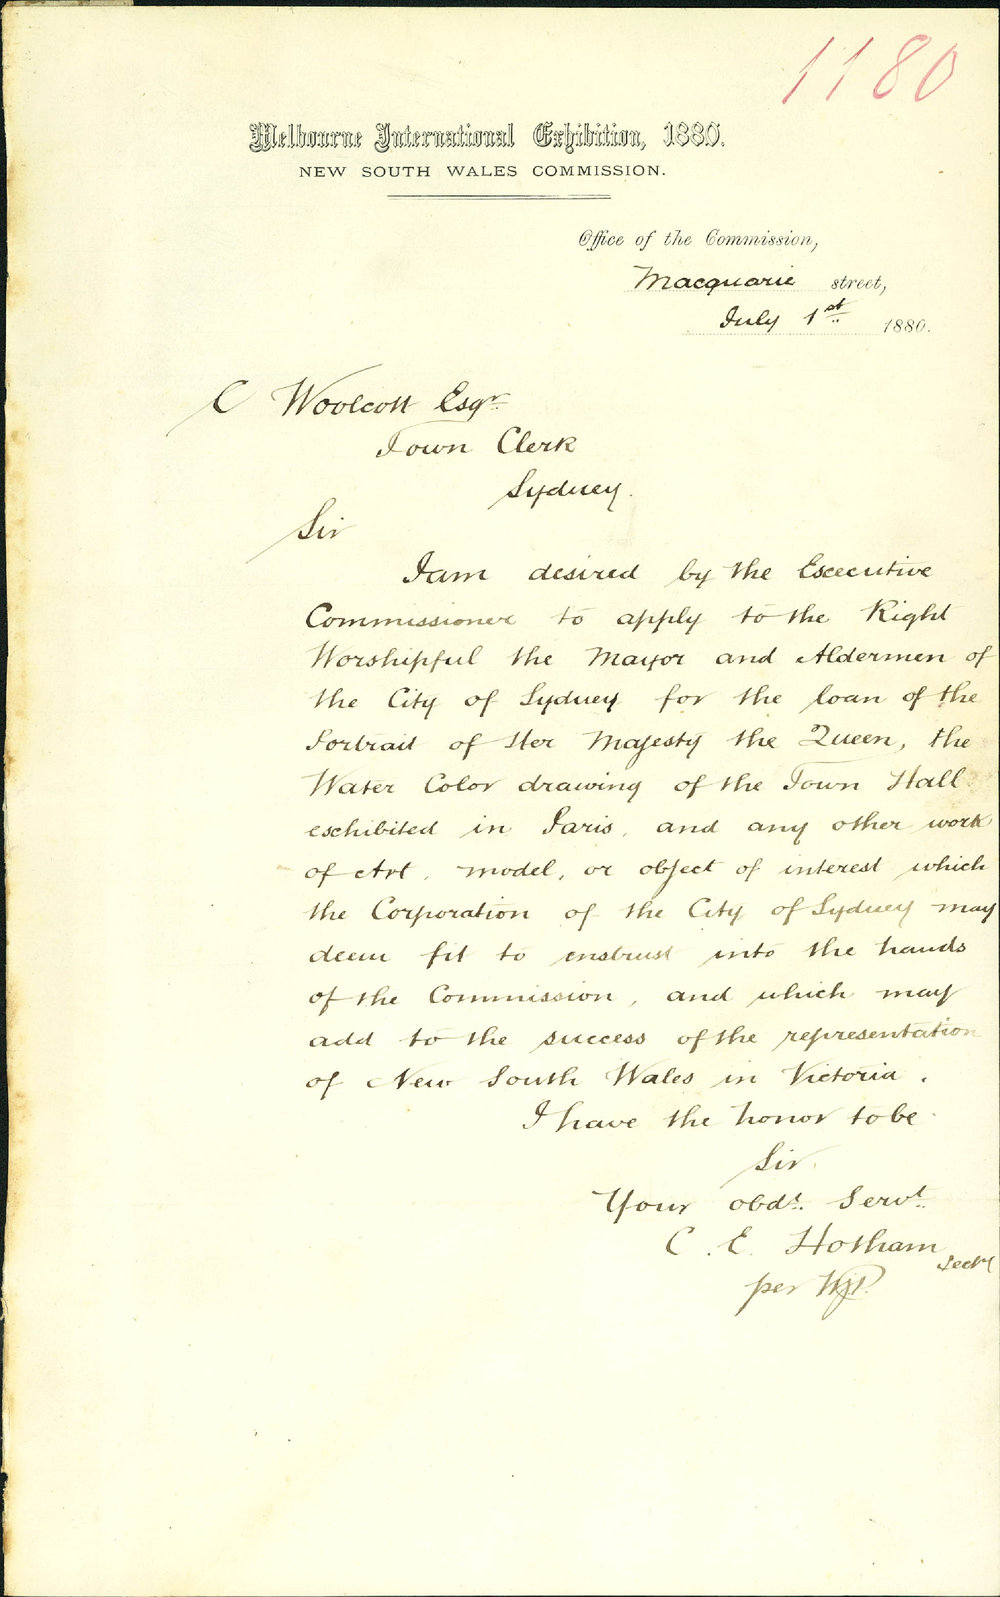 1180
Melbourne International Exhibition, 1880.
NEW SOUTH WALES COMMISSION.
Office of the Commission,
Macquarie street,
July 1st 1880.
C Woolcott Esqr.
Town Clerk
Sydney.
Sir
I am desired by the Executive
Commissioner to apply to the Right
Worshipful the Mayor and Aldermen of
the City of Sydney for the loan of the
Portrait of Her Majesty the Queen, the
Water Color drawing of the Town Hall
exhibited in Paris, and any other work
of Art, model, or object of interest which
the Corporation of the City of Sydney may
deem fit to enstrust into the hands
of the Commission, and which may
add to the success of the representation
of New South Wales in Victoria.
I have the honor to be
Sir.
Your obdt. Servt.
C. E. Hotham
Secty
per